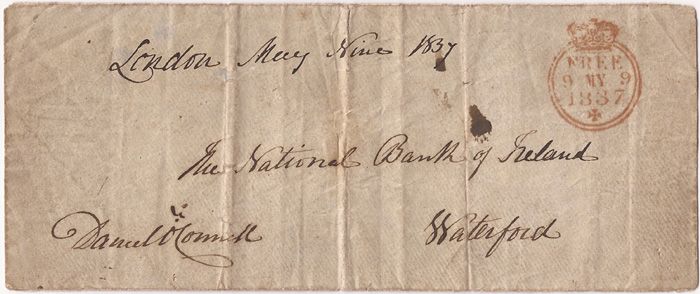 London May Nine 1837
FREE
9 MY 9
1837
The National Bank of Ireland
Daniel O'Connell
Waterford